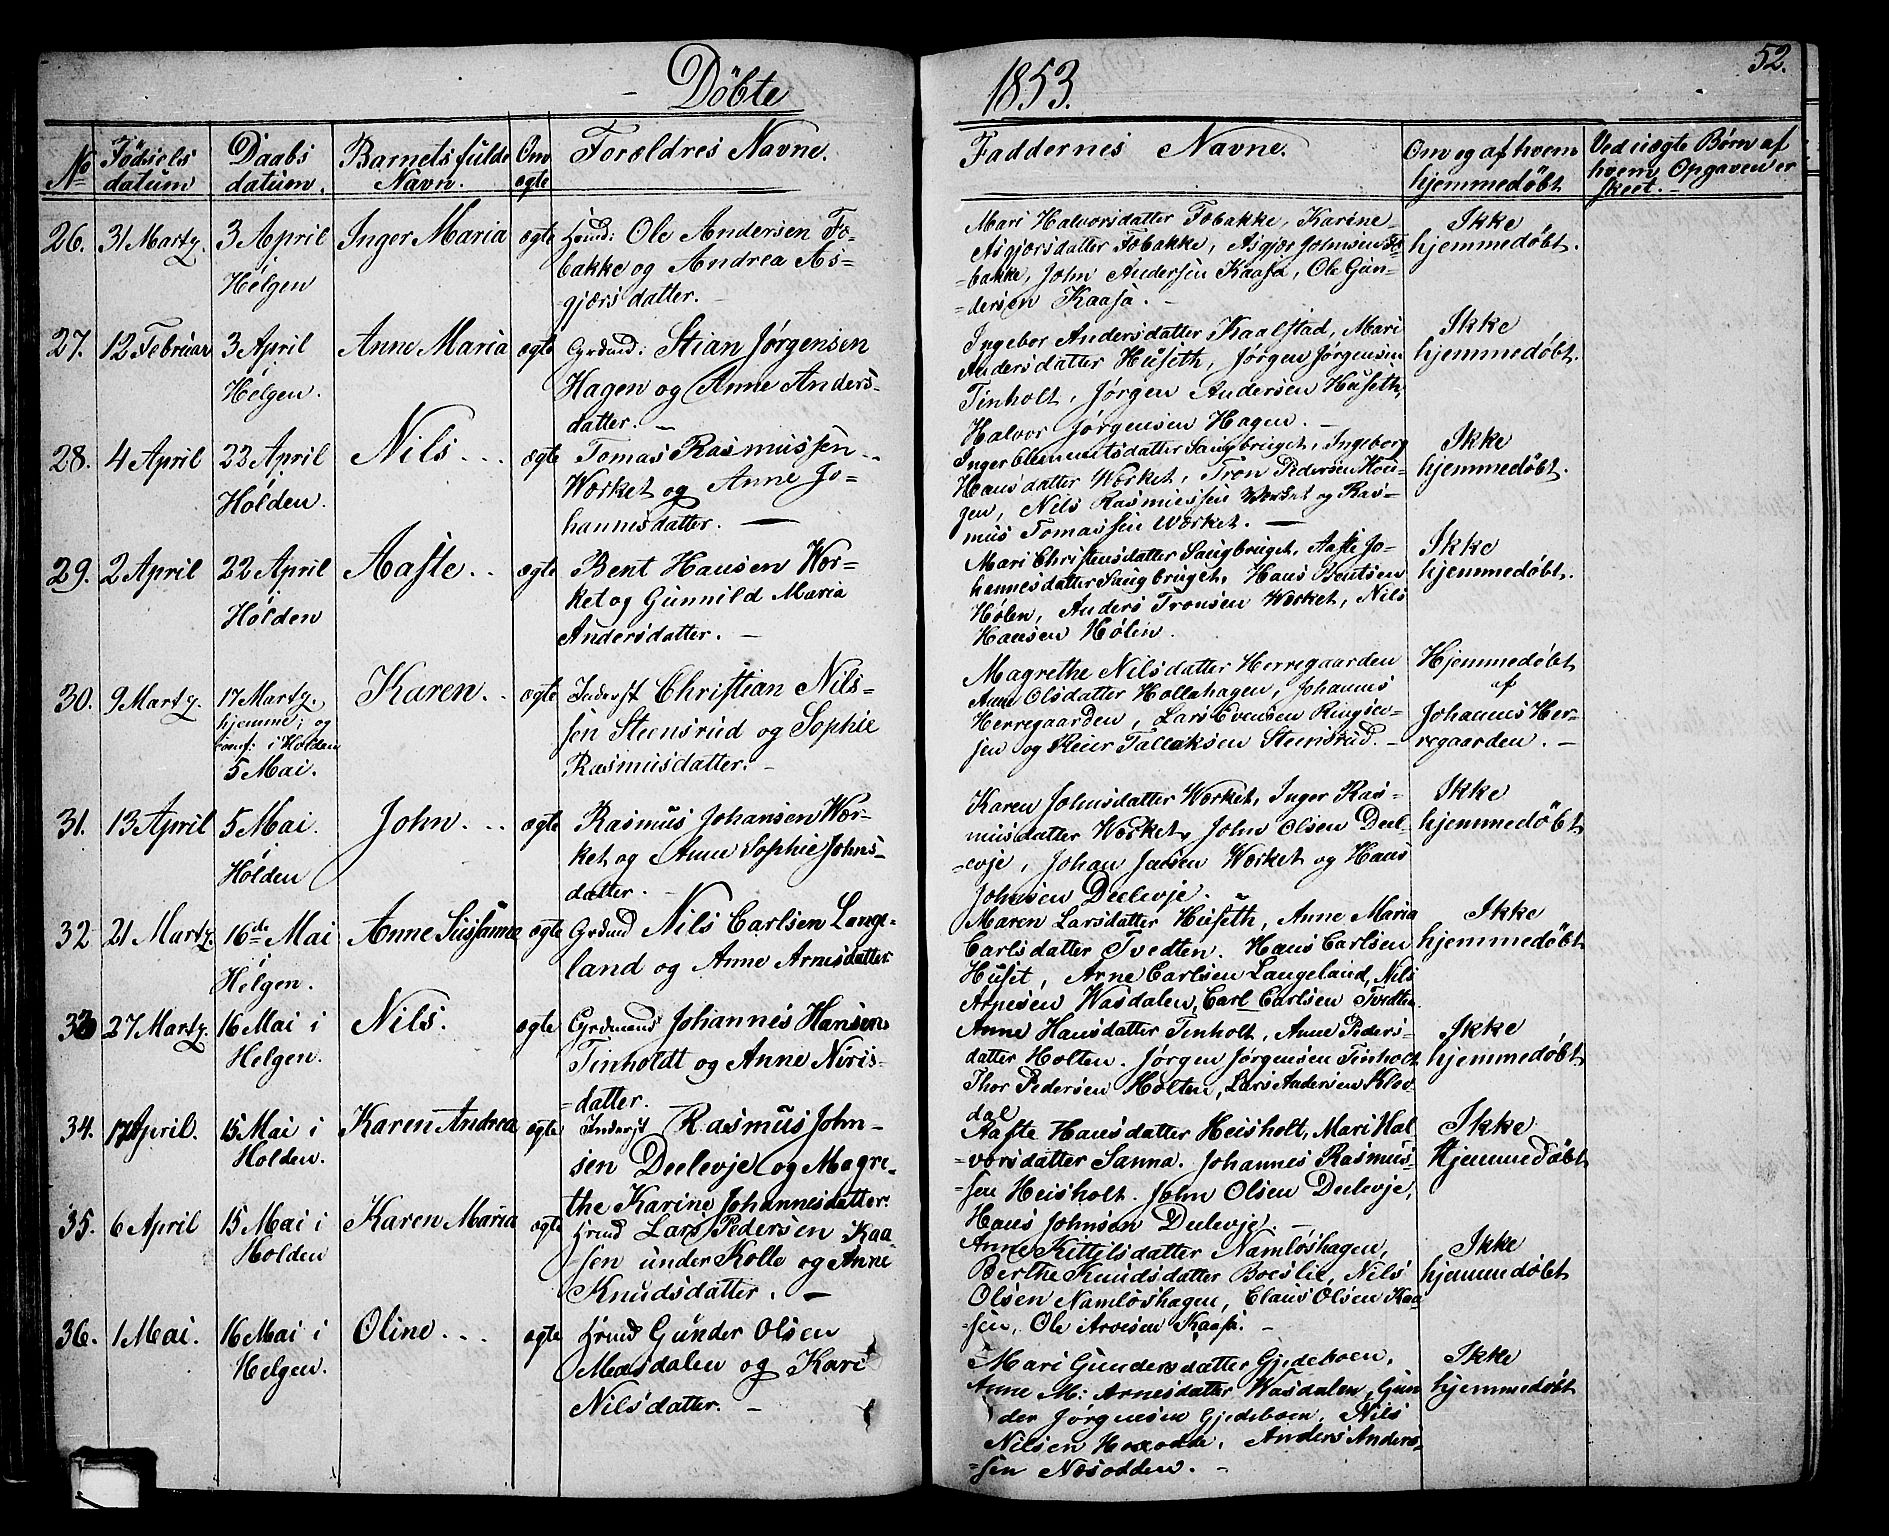 Döbte
1853.
52.
No
Fødsels datum
Daabs datum.
Barnets fulde Navn.
Om ægte
Forældres Navne.
Faddernes Navne.
Om og af hvem hjemmedøbt
Ved uægte Børn af hvem Opgaven er skeet.
26.
31 Martz.
3 April
Helgen
Inger Maria
ægte
Huusd: Ole Andersen Fo-
bakke og Andrea As-
gjærsdatter. -
Mari Halvorsdatter Fobakke, Karine
Asgjærsdatter Fobakke, Asgjær Johnsen Fo-
bakke, John Andersen Kaasa, Ole Gun-
=dersen Kaasa. -
Ikke
hjemmedøbt.
27.
12 Februar
3 April
Helgen.
Anne Maria
ægte
Stian Jørgensen
Hagen og Anne Anders-
datter. -
Ingebor Andersdatter Kaalstad, Mari
Andersdatter Huseth, Jørgen Jørgensen
Tinholt, Jørgen Andersen Huseth,
Halvor Jørgensen Hagen. -
Ikke
hjemmedøbt.
28.
4 April
23 April
Holden.
Nils . . .
ægte
Tomas Rasmussen
Værket og Anne Jo-
hannesdatter. -
Inger Clemmetsdatter Saugbruget, Ingeborg
Hansdatter Værket, Tron Pedersen Hau-
gen, Nils Rasmussen Værket og Ras-
mus Tomassen Værket. -
Ikke
hjemmedøbt.
29.
2 April
22 April
Holden
Aaste. .
ægte
Bent Hansen Vær-
ket og Gunnild Maria
Andersdatter. -
Mari Christensdatter Saugbruget, Aaste Jo-
hannesdatter Saugbruget, Hans Bentsen
Hølen, Anders Tronsen Værket, Nils
Hansen Hølen.
Ikke
hjemmedøbt.
30.
9 Martz.
17 Martz.
hjemme; og
conf: i Holden
5 Mai.
Karen. .
ægte
Inderst Christian Nils-
sen Steensrud og Sophie
Rasmusdatter. -
Magrethe Nilsdatter Herregaarden
Anne Olsdatter Hollahagen, Johannes
Herregaarden, Lars Evensen Ringsev-
jen og Reier Tallaksen Steensrud. -
Hjemmedøbt
af
Johannes Her-
regaarden. -
31.
13 April
5 Mai.
Holden
John. . .
ægte
Rasmus Johansen Vær-
ket og Anne Sophie Johns-
datter. -
Karen Johnsdatter Værket, Inger Ras-
musdatter Værket, John Olsen Deel-
=evje, Johan Jansen Værket og Hans
Johnsen Deelevje.
Ikke
hjemmedøbt
32
21 Martz.
16de Mai
Helgen.
Anne Susanne
ægte
Grdmd Nils Carlsen Lange-
land og Anne Arnesdatter.
Maren Larsdatter Huseth, Anne Maria
Carlsdatter Tvedten. Hans Carlsen
Huset, Arne Carlsen Langeland, Nils
Arnesen Wasdalen, Carl Carlsen Tvedten
Ikke
hjemmedøbt
33
27 Martz.
16 Mai i
Helgen.
Nils.
ægte
Johannes Hansen
Tinholdt og Anne Niris-
=datter.
Anne Hansdatter Tinholt, Anne Peders-
datter Holten. Jørgen Jørgensen Tinholt
Thor Pedersen Holten, Lars Andersen Klov-
dal
Ikke
hjemmedøbt
34.
17 April.
15 Mai i
Holden.
Karen Andrea
ægte
Inderst Rasmus John-
sen Deelevje og Magre-
the Karine Johannesdatter.
Aaste Hansdatter Heisholt, Mari Hal
=vorsdatter Sanna. Johannes Rasmus-
=sen Heisholt. John Olsen Deelevje,
Hans Johnsen Deelevje. -
Ikke
Hjemmedøbt
35.
6 April
15 Mai i
Holden
Karen Maria
ægte
Lars Pedersen Kaa-
sen under Kolle og Anne
Knudsdatter. -
Anne Kittilsdatter Namløshagen,
Berthe Knudsdatter Boeslie, Nils
Olsen Namløshagen, Claus Olsen Kaa-
=sen, Ole Arvesen Kaasa. -
Ikke
hjemmedøbt
36.
1 Mai.
16 Mai i
Helgen.
Oline . . .
ægte
Gunder Olsen
Mæsdalen og Kari
Nilsdatter. -
Mari Gundersdatter Gjedeboen,
Anne M: Arnesdatter Wasdalen, Gun
der Jørgensen Gjedeboen, Nils
Nilsen Noxodde, Anders Anders-
sen Næsodden. -
Ikke
hjemmedøbt